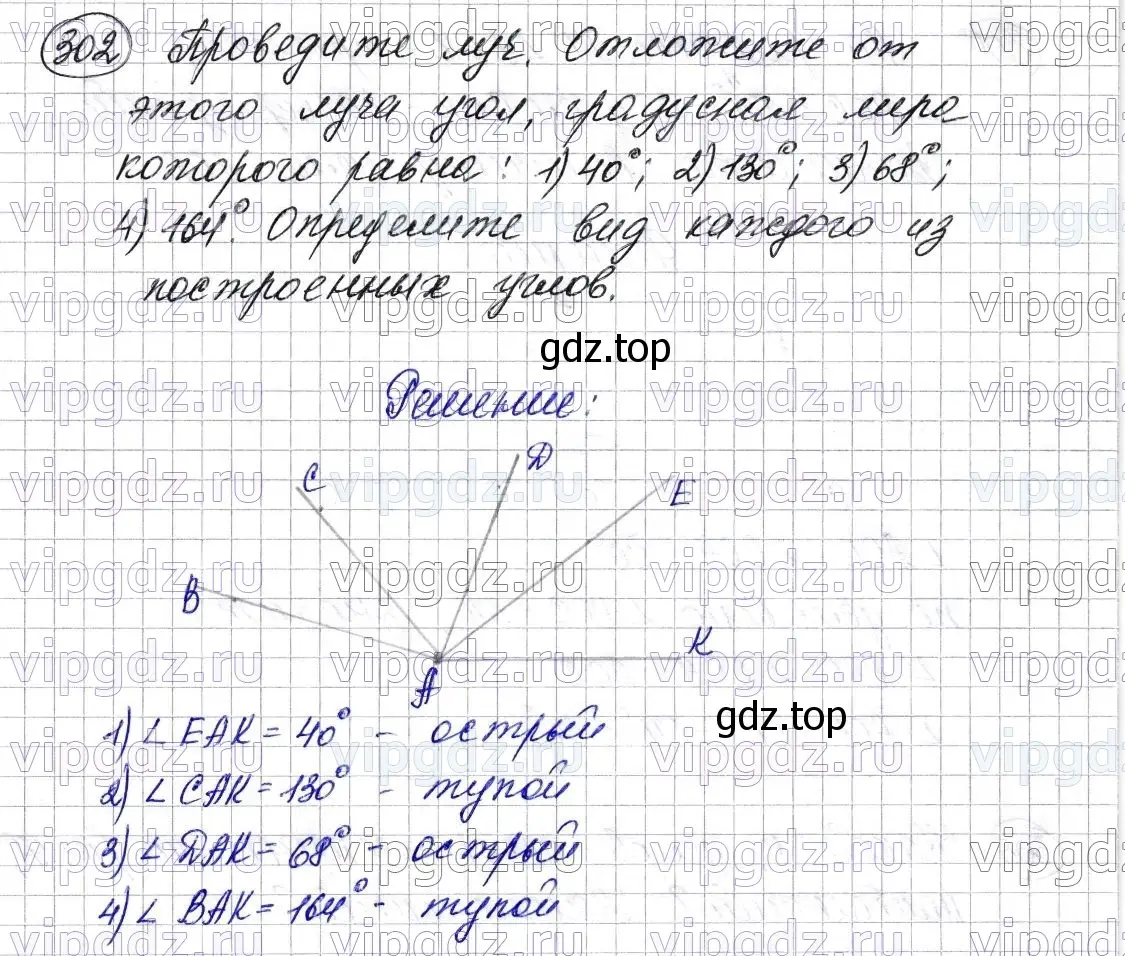 302 Проведите луч. Отложите от
этого луча угол, градусная мира
которого равна: 1) 40°; 2) 130°; 3) 68°;
4) 164°. Определите вид каждого из
построенных углов.
gdz.top
Решение:
C
D
E
B
K
A
1) ∠ EAK = 40° - острый
gdz.top
2) ∠ CAK = 130° - тупой
3) ∠ DAK = 68° - острый
4) ∠ BAK = 164° - тупой
vipgdz.ru